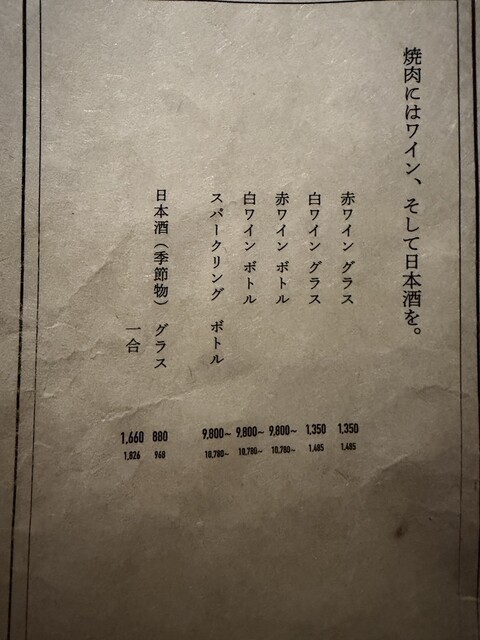 焼肉にはワイン、そして日本酒を。
赤ワイン グラス 1,350 1,485
白ワイン グラス 1,350 1,485
赤ワイン ボトル 9,800~ 10,780~
白ワイン ボトル 9,800~ 10,780~
スパークリング ボトル 9,800~ 10,780~
日本酒（季節物） グラス 880 968
一合 1,660 1,826